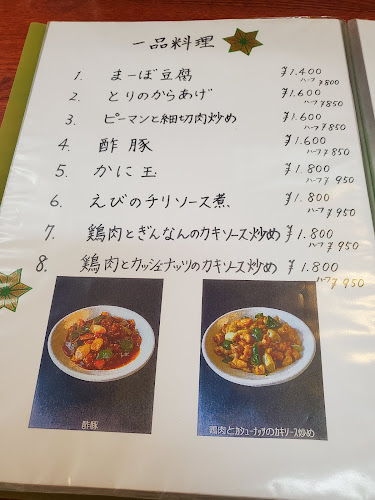 一品料理
1. まーぼ豆腐 ¥1.400
ハーフ ¥800
2. とりのからあげ ¥1.600
ハーフ ¥850
3. ピーマンと細切肉炒め ¥1.600
ハーフ ¥850
4. 酢豚 ¥1.600
ハーフ ¥850
5. かに玉 ¥1.800
ハーフ ¥950
6. えびのチリソース煮 ¥1.800
ハーフ ¥950
7. 鶏肉とぎんなんのカキソース炒め ¥1.800
ハーフ ¥950
8. 鶏肉とカッシュナッツのカキソース炒め ¥1.800
ハーフ ¥950
酢豚
鶏肉とカシューナッツのカキソース炒め